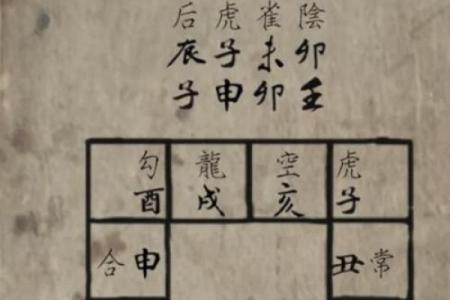 后 虎 雀 陰
辰 子 未 卯
子 申 卯 壬
勾 龍 空 虎
酉 戌 亥 子
合 申 丑 常